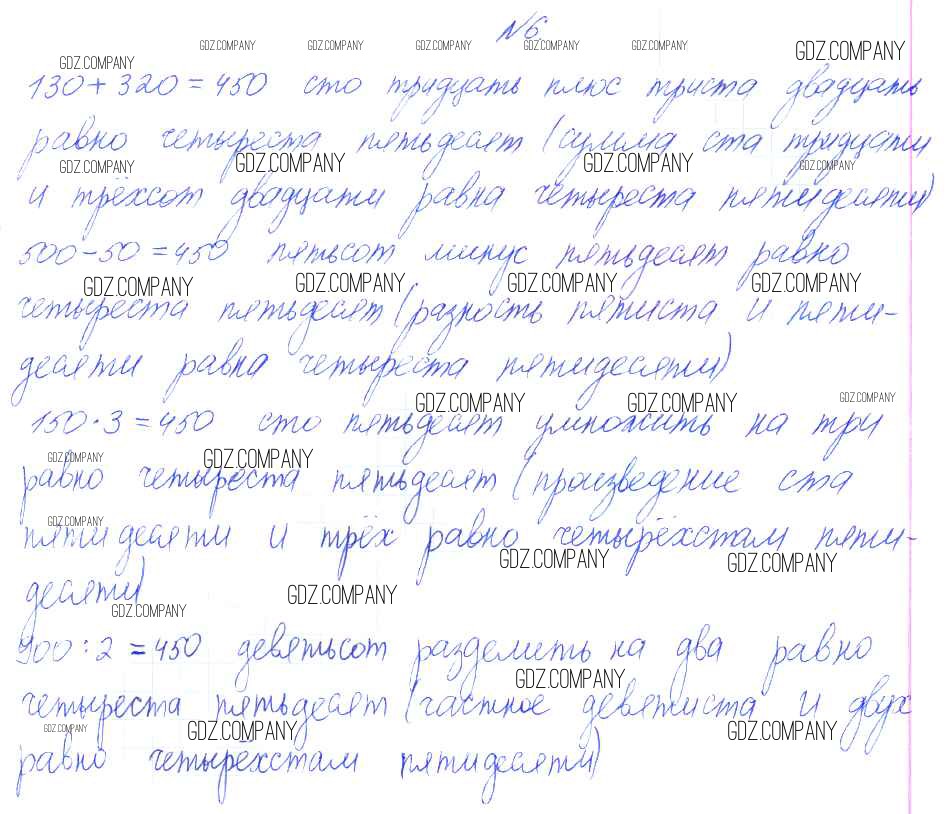 №6
GDZ.COMPANY GDZ.COMPANY GDZ.COMPANY GDZ.COMPANY GDZ.COMPANY GDZ.COMPANY
GDZ.COMPANY
130+320=450 сто тридцать плюс триста двадцать
равно четыреста пятьдесят (сумма ста тридцати
GDZ.COMPANY GDZ.COMPANY GDZ.COMPANY GDZ.COMPANY
и трёхсот двадцати равна четыреста пятидесяти)
500-50=450 пятьсот минус пятьдесят равно
GDZ.COMPANY GDZ.COMPANY GDZ.COMPANY GDZ.COMPANY
четыреста пятьдесят (разность пятиста и пяти-
десяти равна четыреста пятидесяти)
GDZ.COMPANY GDZ.COMPANY GDZ.COMPANY
150·3=450 сто пятьдесят умножить на три
GDZ.COMPANY GDZ.COMPANY
равно четыреста пятьдесят (произведение ста
GDZ.COMPANY
пятидесяти и трёх равно четырёхстам пяти-
GDZ.COMPANY GDZ.COMPANY
десяти)
GDZ.COMPANY GDZ.COMPANY
900:2=450 девятьсот разделить на два равно
GDZ.COMPANY
четыреста пятьдесят (частное девятиста и двух
GDZ.COMPANY GDZ.COMPANY GDZ.COMPANY
равно четырёхстам пятидесяти)